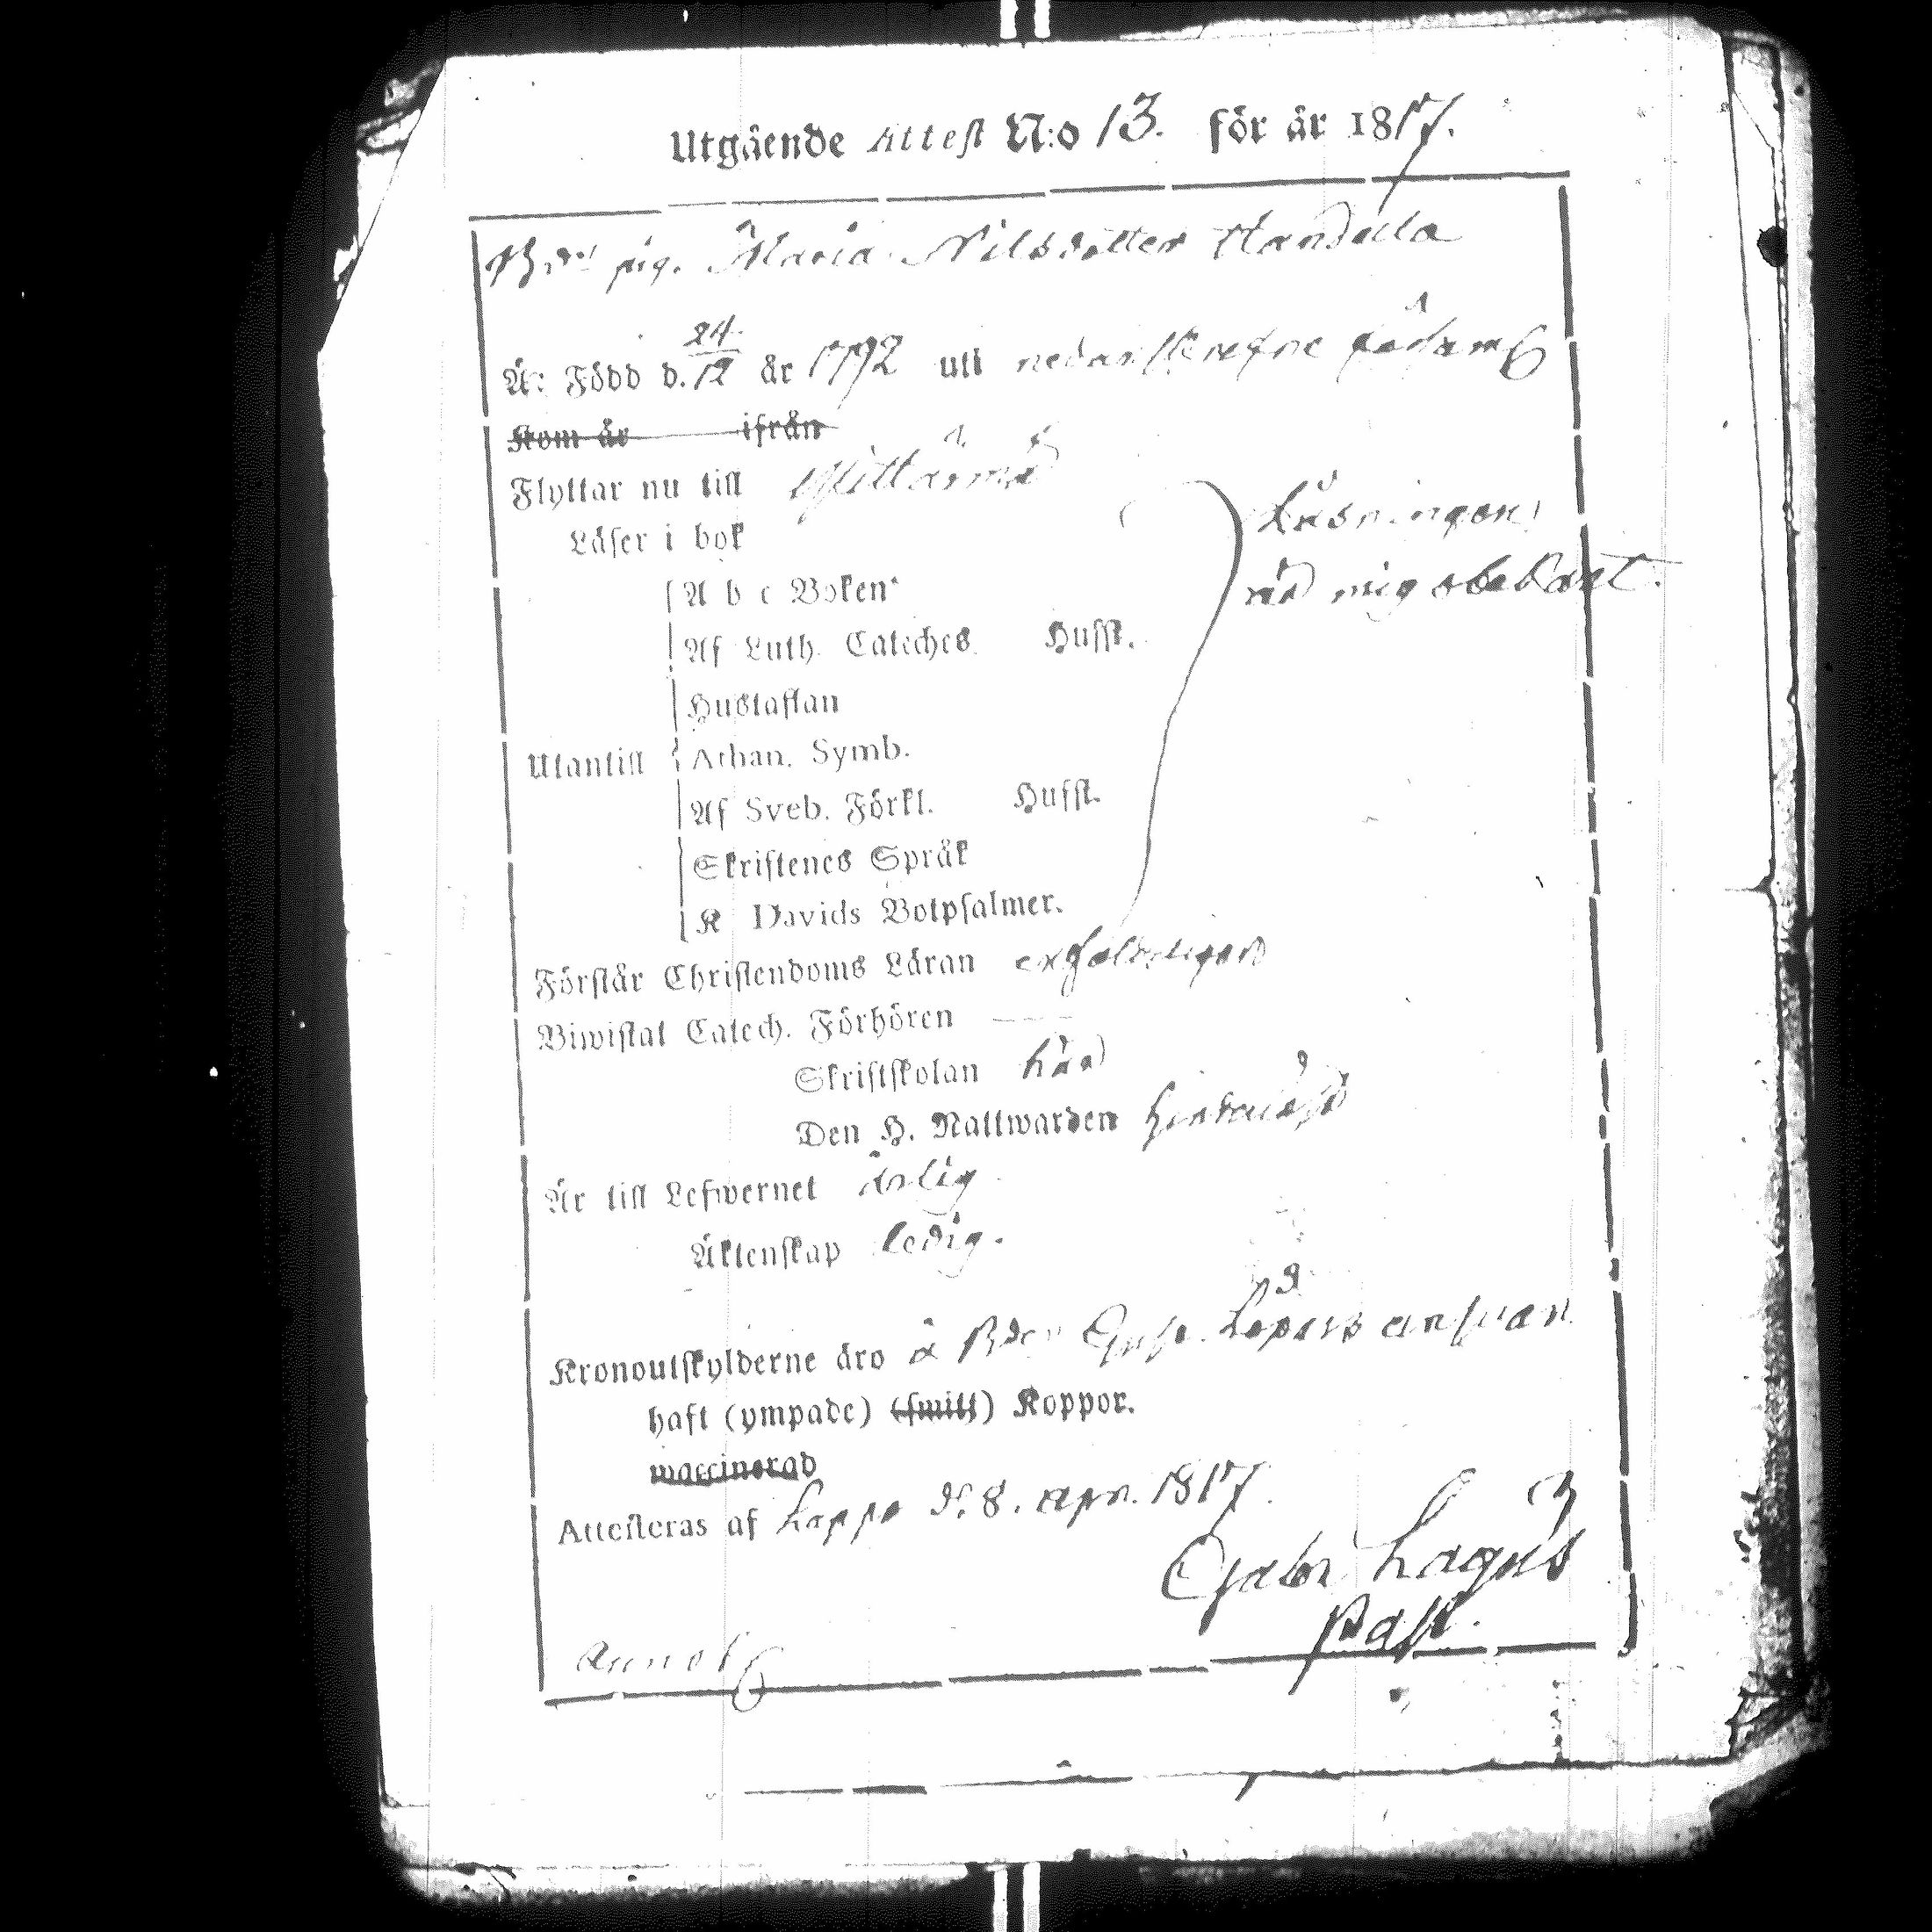 Utgående Attest N:o 13. för år 1817.
pig. Maria Nilsdotter Handela
Är: Född d. 24/12 år 1792 uti nedanskrefne
Kom år ifrån
Flyttar nu till
Läser i bok Läsningen
A b c Boken är mig obekant.
Af Luth. Cateches Husst.
Hustaflan
Utantill Athan. Symb.
Af Sveb. Förkl. Husst.
Skriftenes Språk
K Davids Botpsalmer.
Förstår Christendoms Läran enfaldeligen
Biwistat Catech. Förhören —
Skriftskolan här
Den H. Nattwarden
Är till Lefwernet ärlig
Äktenskap ledig.
Kronoutskylderne äro å answar
haft (ympade) (smitt) Koppor.
waccinerad
Attesteras af Lappo d. 8. apr. 1817.
Gabr. Lagus
Past.